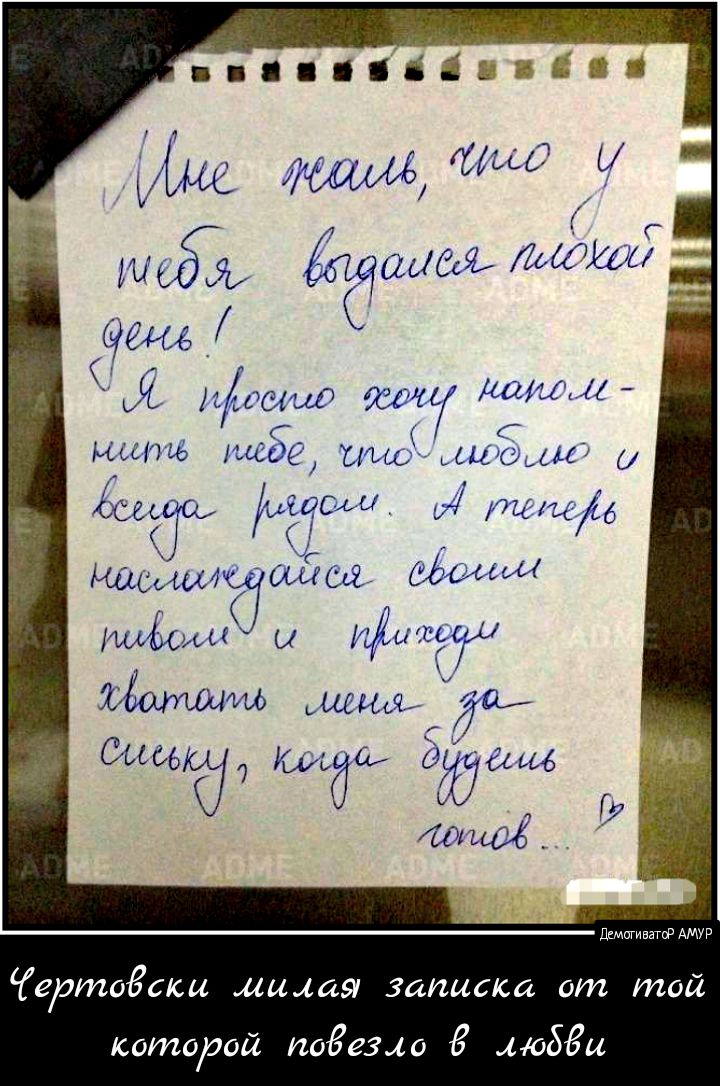 Мне жаль, что у
тебя выдался плохой
день!
Я просто хочу напом-
нить тебе, что люблю и
всегда рядом. А теперь
наслаждайся своим
пивом и приходи
хватать меня за
сиську, когда будешь
готов...
ДемотиватоР АМУР
Чертовски милая записка от той
которой повезло в любви
ADME